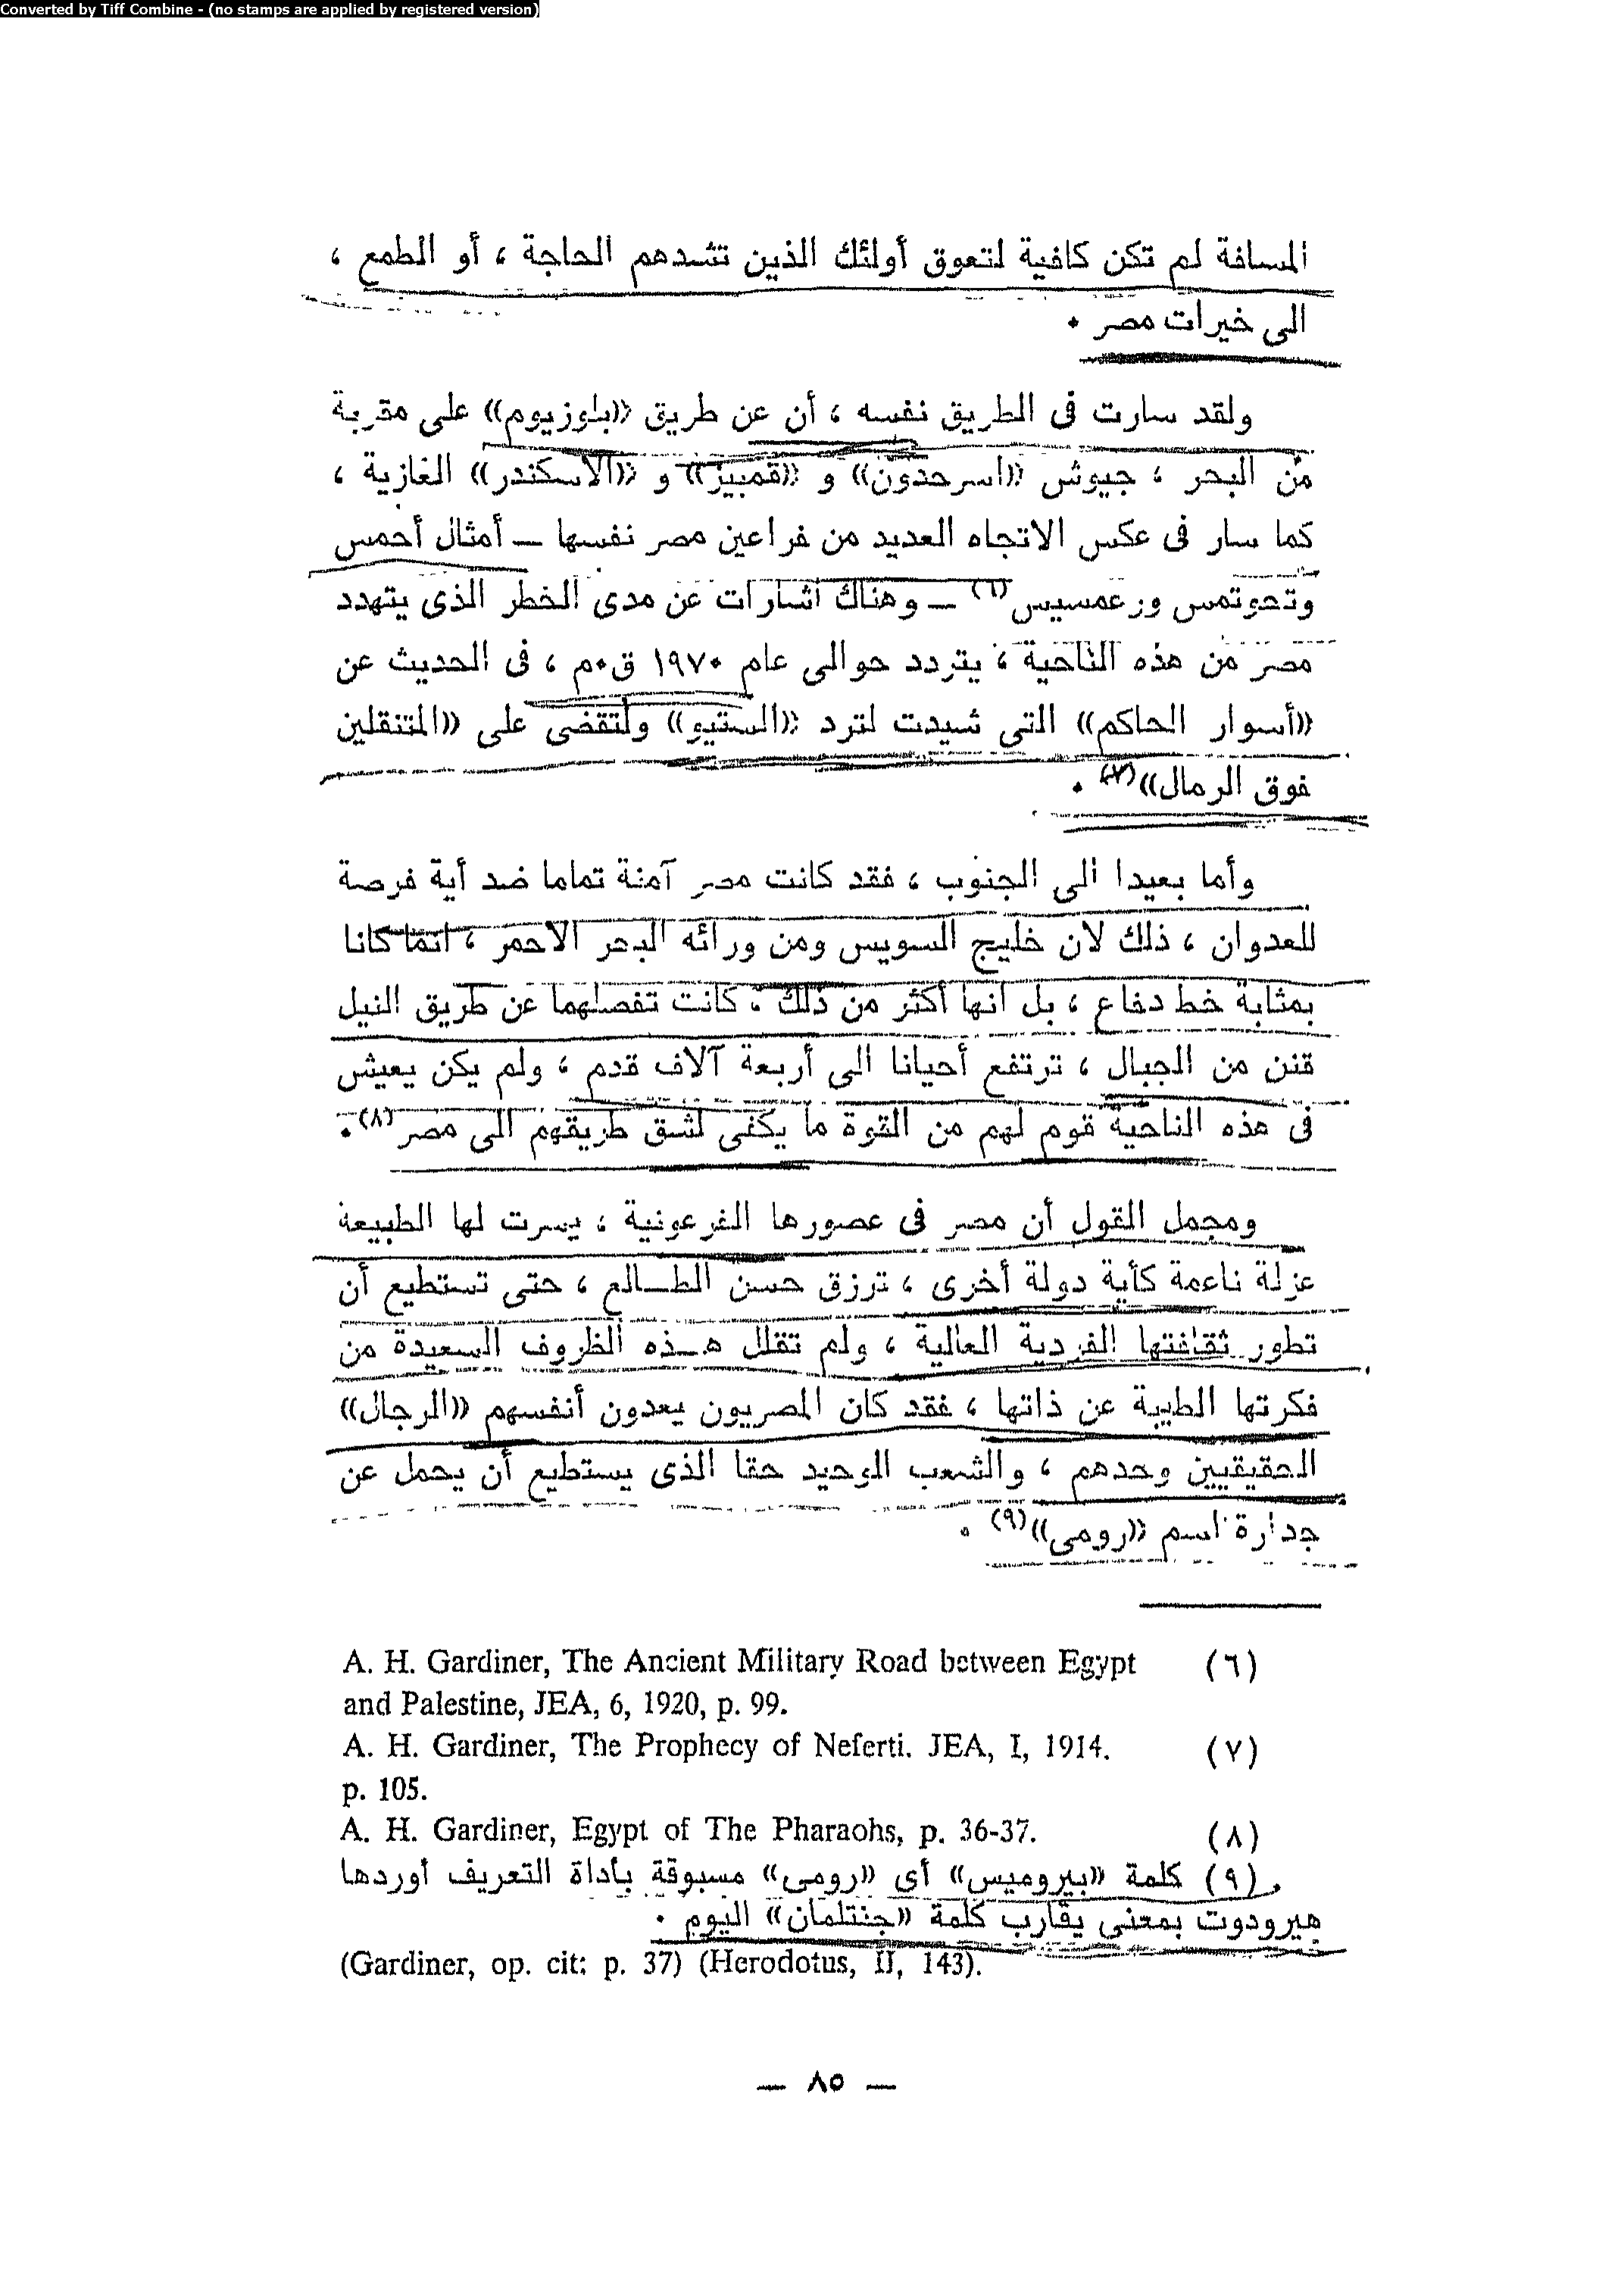 Converted by Tiff Combine - (no stamps are applied by registered version)
المسافة لم تكن كافية لتعوق أولئك الذين تشدهم الحاجة ، أو الطمع ،
الى خيرات مصر ٠
ولقد سارت فى الطريق نفسه ، أن عن طريق «بلوزيوم» على مقربة
من البحر ، جيوش «اسرحدون» و «قمبيز» و «الاسكندر» الغازية ،
كما سار فى عكس الاتجاه العديد من فراعين مصر نفسها — أمثال أحمس
وتحوتمس ورعمسيس(٦) — وهناك اشارات عن مدى الخطر الذى يتهدد
مصر من هذه الناحية ، يتردد حوالى عام ١٩٧٠ ق٠م ، فى الحديث عن
«أسوار الحاكم» التى شيدت لترد «الستيو» ولتقضى على «المتنقلين
فوق الرمال»(٧) ٠
وأما بعيدا الى الجنوب ، فقد كانت مصر آمنة تماما ضد أية فرصة
للعدوان ، ذلك لان خليج السويس ومن ورائه البحر الاحمر ، انما كانا
بمثابة خط دفاع ، بل انها أكثر من ذلك ، كانت تفصلهما عن طريق النيل
قنن من الجبال ، ترتفع أحيانا الى أربعة آلاف قدم ، ولم يكن يعيش
فى هذه الناحية قوم لهم من القوة ما يكفى لشق طريقهم الى مصر(٨) ٠
ومجمل القول أن مصر فى عصورها الفرعونية ، يسرت لها الطبيعة
عزلة ناعمة كأية دولة أخرى ، ترزق حسن الطـالع ، حتى تستطيع أن
تطور ثقافتها الفردية العالية ، ولم تقلل هـذه الظروف السعيدة من
فكرتها الطيبة عن ذاتها ، فقد كان المصريون يعدون أنفسهم «الرجال»
الحقيقيين وحدهم ، والشعب الوحيد حقا الذى يستطيع أن يحمل عن
جدارة اسم «رومى»(٩) ٠
(٦) A. H. Gardiner, The Ancient Military Road between Egypt
and Palestine, JEA, 6, 1920, p. 99.
(٧) A. H. Gardiner, The Prophecy of Neferti. JEA, I, 1914.
p. 105.
(٨) A. H. Gardiner, Egypt of The Pharaohs, p. 36-37.
(٩) كلمة «بيروميس» أى «رومى» مسبوقة بأداة التعريف أوردها
هيرودوت بمعنى يقارب كلمة «جنتلمان» اليوم ٠
(Gardiner, op. cit: p. 37) (Herodotus, II, 143).
— ٨٥ —